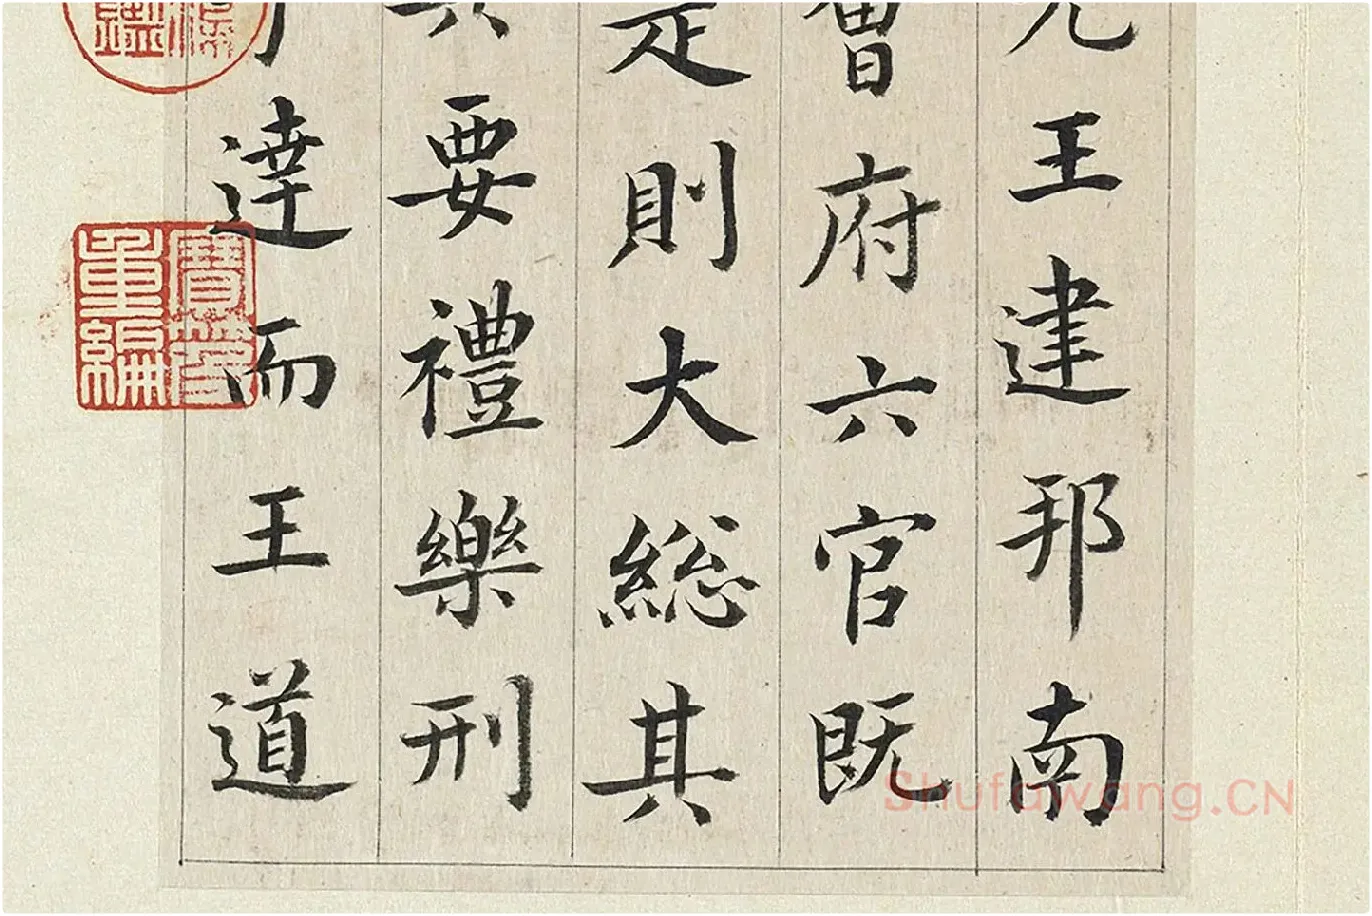 王建邦南
府六官既
則大総其
要禮樂刑
達而王道
寶笈
重編
Shufawang.CN